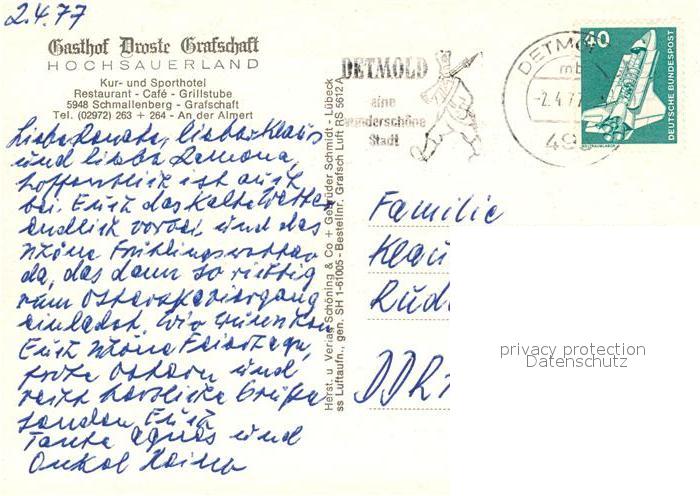 2.4.77
Gasthof Droste Grafschaft
HOCHSAUERLAND
Kur- und Sporthotel
Restaurant - Café - Grillstube
5948 Schmallenberg - Grafschaft
Tel. (02972) 263 + 264 - An der Almert
Liebe Renate, lieber Klaus
und liebe Ramona,
hoffentlich ist auch
bei Euch das kalte Wetter
endlich vorbei und das
schöne Frühlingswetter
da, das dann so richtig
zum Osterspaziergang
einladet. Wir wünschen
Euch schöne Feiertage,
frohe Ostern und
recht herzliche Grüße
senden Euch
Tante Agnes und
Onkel Heinz
Herst. u. Verlag Schöning & Co + Gebrüder Schmidt - Lübeck
ss Luftaufn., gen. SH 1-61005 - Bestellnr. Grafsch Luft RS 5612 A
DETMOLD
eine
wunderschöne
Stadt
DETMO
mb
-2.4.77
49
40
DEUTSCHE BUNDESPOST
WELTRAUMLABOR
Familie
Klau
Rud
DDR
privacy protection
Datenschutz